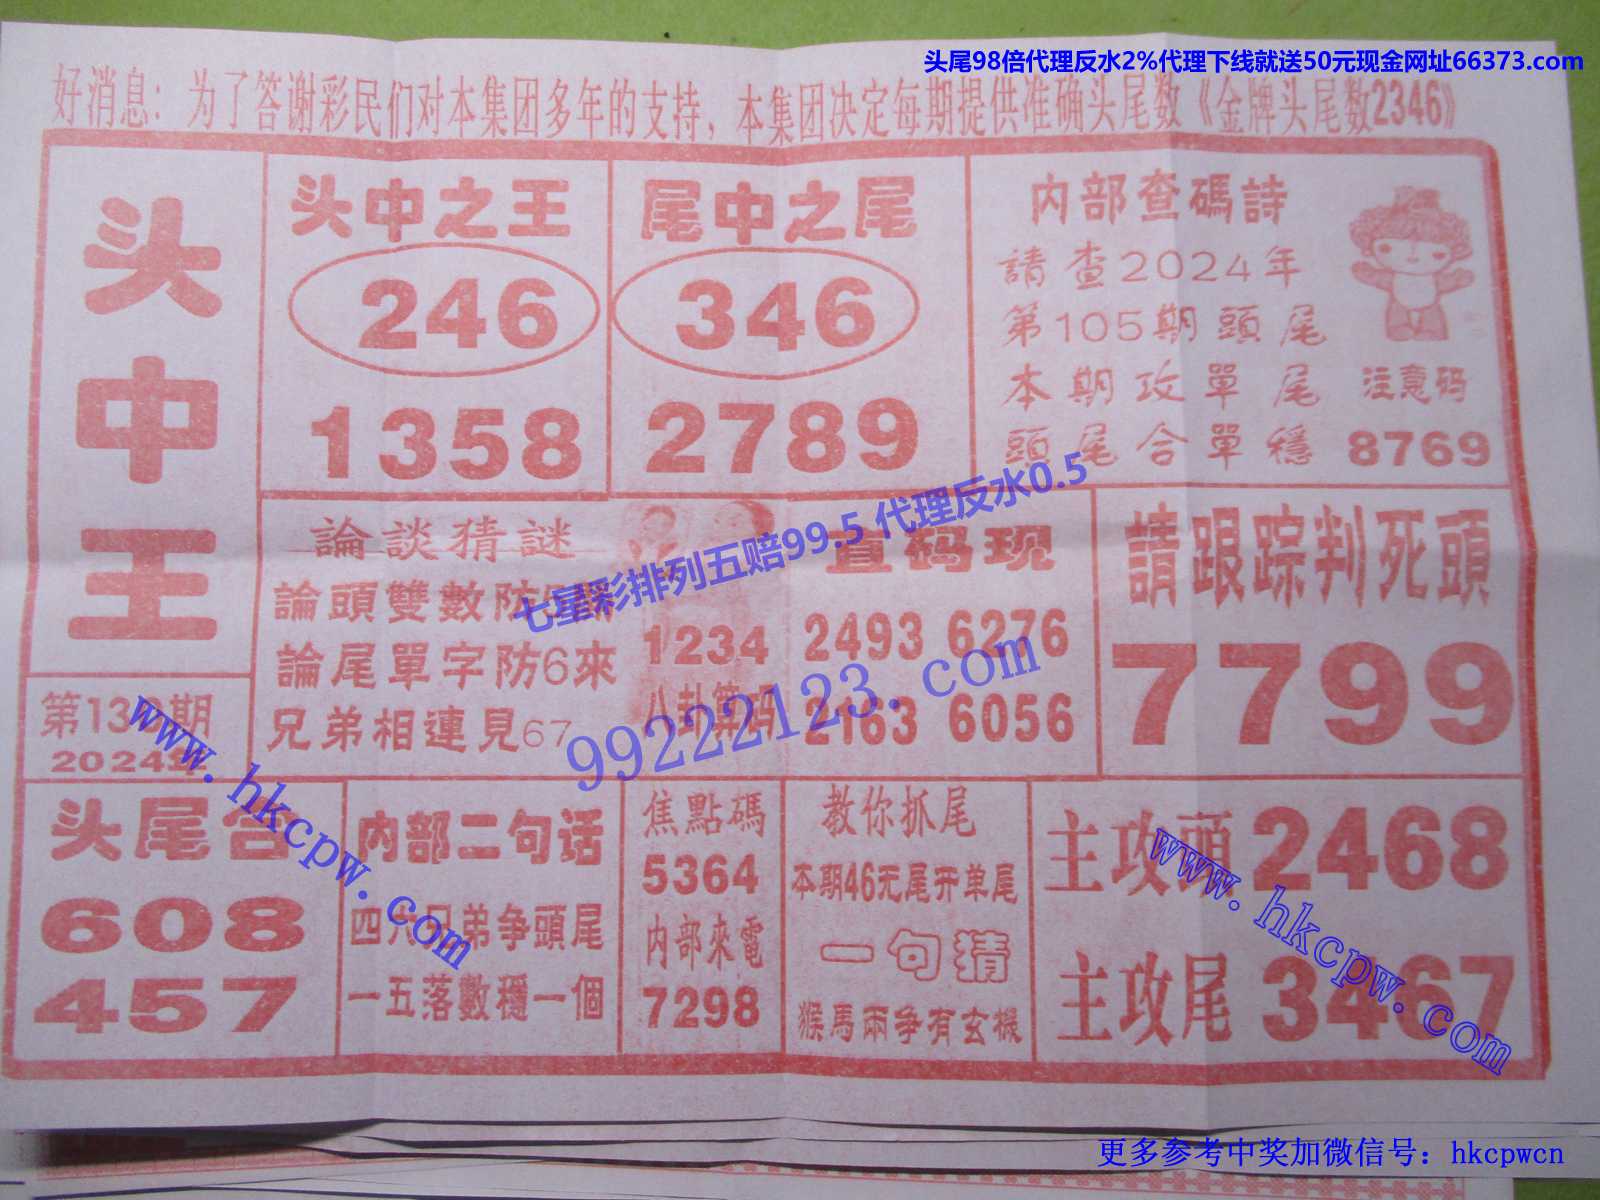 头尾98倍代理反水2%代理下线就送50元现金网址66373.com
好消息：为了答谢彩民们对本集团多年的支持，本集团决定每期提供准确头尾数《金牌头尾数2346》
头中王
第13 期
2024年
头中之王
246
1358
尾中之尾
346
2789
内部查碼詩
請查2024年
第105期頭尾
本期攻單尾
頭尾合單穩
注意码
8769
論談猜謎
論頭雙數防
論尾單字防6來
兄弟相連見67
1234
八卦算码
直码现
2493 6276
2163 6056
請跟踪判死頭
7799
七星彩排列五赔99.5 代理反水0.5
99222123.com
www.hkcpw.com
头尾合
608
457
内部二句话
四六兄弟争頭尾
一五落數穩一個
焦點碼
5364
内部來電
7298
教你抓尾
本期46无尾开单尾
一句猜
猴馬兩争有玄機
主攻頭2468
主攻尾3467
www.hkcpw.com
更多参考中奖加微信号：hkcpwcn